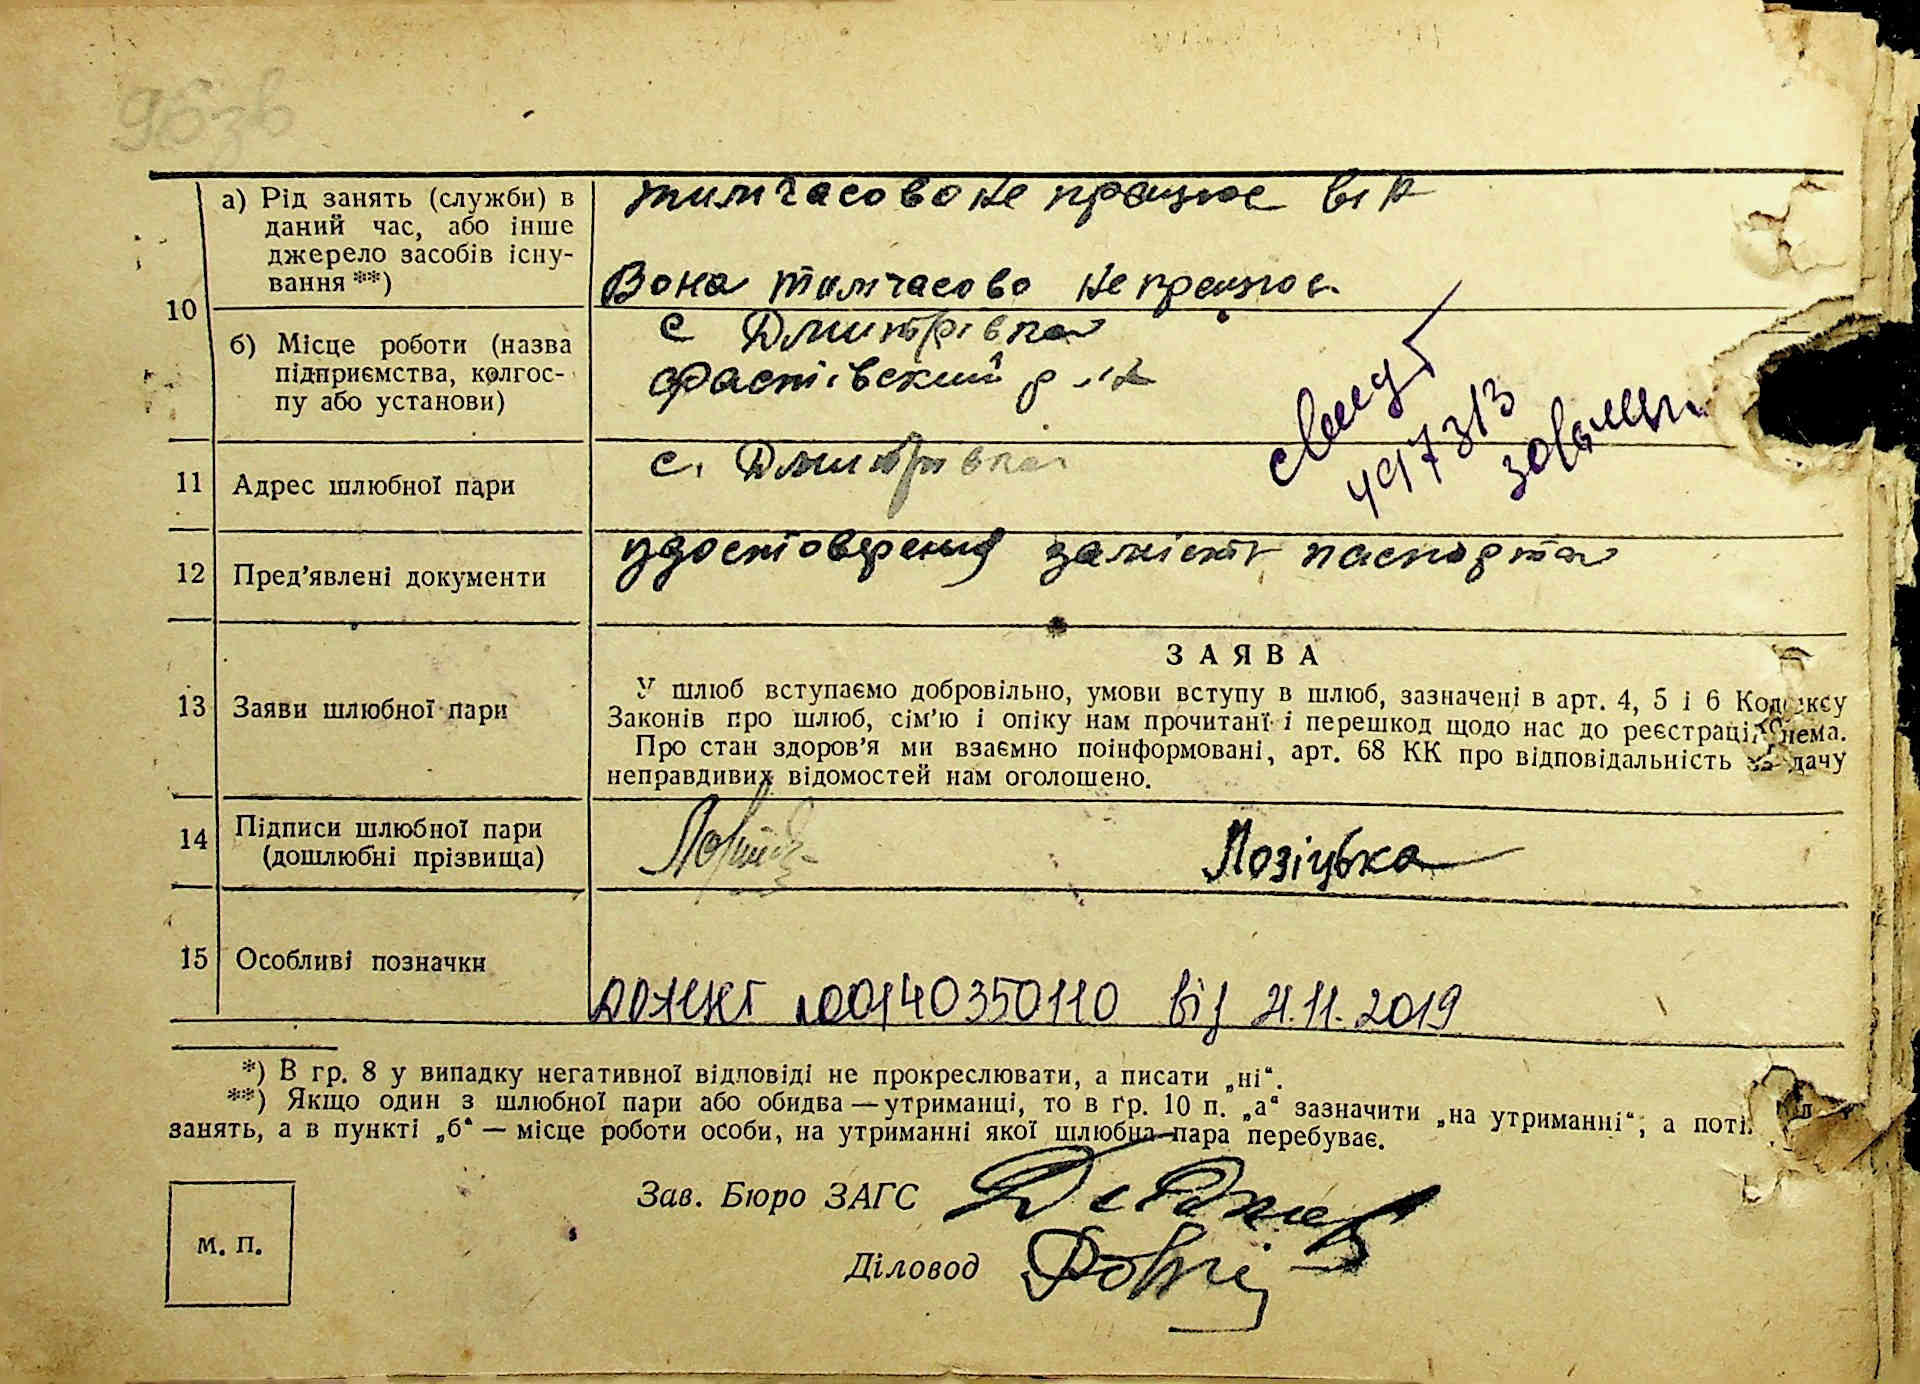 а) Рід занять (служби) в
даний час, або інше
джерело засобів існу-
вання **)
тимчасово не працює він
Вона тимчасово не працює.
10
б) Місце роботи (назва
підприємства, колгос-
пу або установи)
с Дмитрівка
Фастівский р
11 Адрес шлюбної пари
с. Дмитрівка
497313
12 Пред'явлені документи
удостоверения замість паспорта
13 Заяви шлюбної пари
ЗАЯВА
У шлюб вступаємо добровільно, умови вступу в шлюб, зазначені в арт. 4, 5 і 6 Кодексу
Законів про шлюб, сім'ю і опіку нам прочитані і перешкод щодо нас до реєстрації нема.
Про стан здоров'я ми взаємно поінформовані, арт. 68 КК про відповідальність за дачу
неправдивих відомостей нам оголошено.
14 Підписи шлюбної пари
(дошлюбні прізвища)
Лозіцька
15 Особливі позначки
№00140350110 від 21.11.2019
*) В гр. 8 у випадку негативної відповіді не прокреслювати, а писати „ні“.
**) Якщо один з шлюбної пари або обидва — утриманці, то в гр. 10 п. „а“ зазначити „на утриманні“, а поті
занять, а в пункті „б“ — місце роботи особи, на утриманні якої шлюбна пара перебуває.
Зав. Бюро ЗАГС
Діловод
М. П.